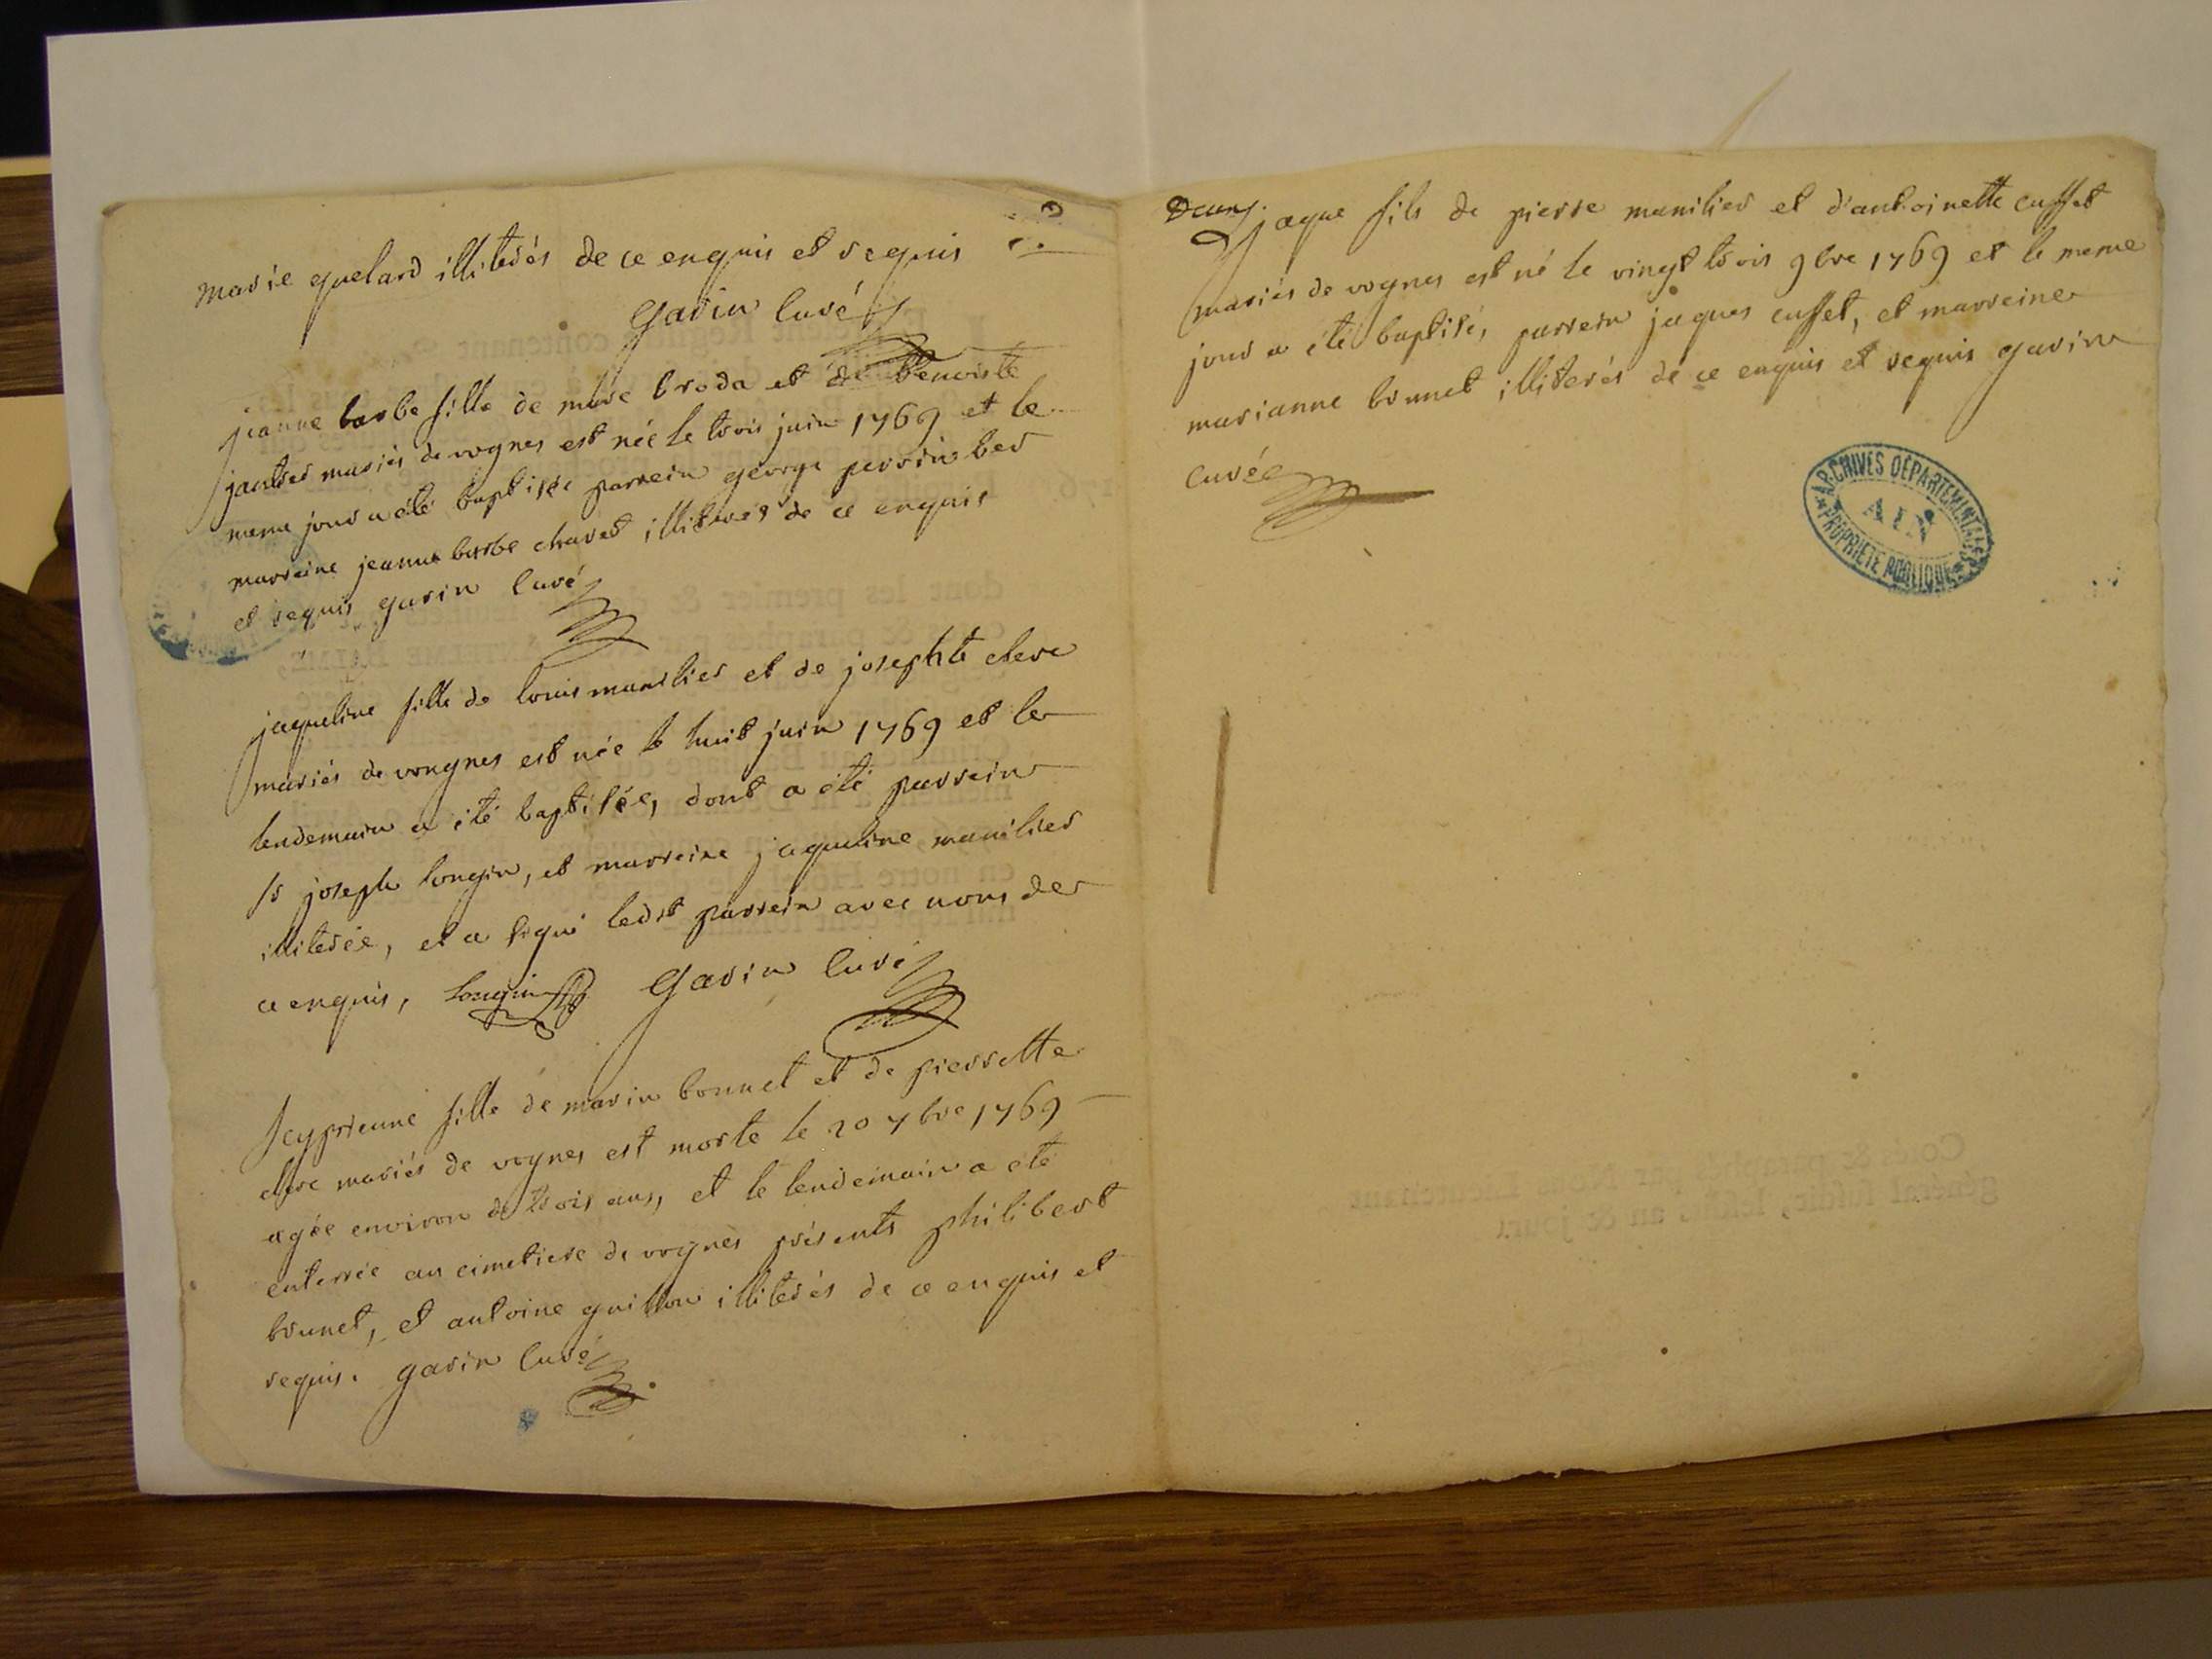 marie quelard illiterés de ce enquis et requis
Gavin Curé
jeanne barbe fille de marc broda et de benoiste
jantet mariés de vognes est née le trois juin 1769 et le
meme jour a été baptisée parrein george perrin ber
marreine jeanne barbe chavet illiterés de ce enquis
et requis gavin Curé
jaqueline fille de louis manilier et de josephte clerc
mariés de vongnes est née le huit juin 1769 et le
lendemain a été baptisée, dont a été parrein
sr joseph longin, et marreine jaqueline manilier
illiterée, et a signé ledit parrein avec nous de
ce enquis, Longin Gavin Curé
cyprienne fille de marin bonnet et de pierrette
clerc mariés de vognes est morte le 20 7bre 1769
agée environ de trois ans, et le lendemain a été
enterrée au cimetiere de vognes présents philibert
brunet, et antoine guillon illiterés de ce enquis et
requis. gavin Curé
Deux.
jaque fils de pierre manilier et d'antoinette cusset
mariés de vognes est né le vingt trois 9bre 1769 et le meme
jour a été baptisé, parrein jaques cusset, et marreine
marianne brunet illiterés de ce enquis et requis gavin
Curé
ARCHIVES DÉPARTEMENTALES
AIN
PROPRIÉTÉ PUBLIQUE